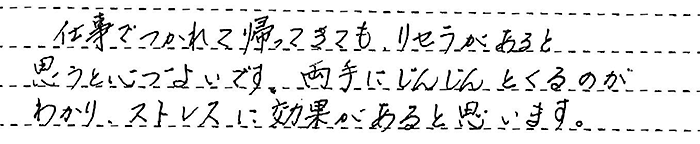 仕事でつかれて帰ってきても、リセラがあると
思うと心づよいです。両手にじんじんとくるのが
わかり、ストレスに効果があると思います。